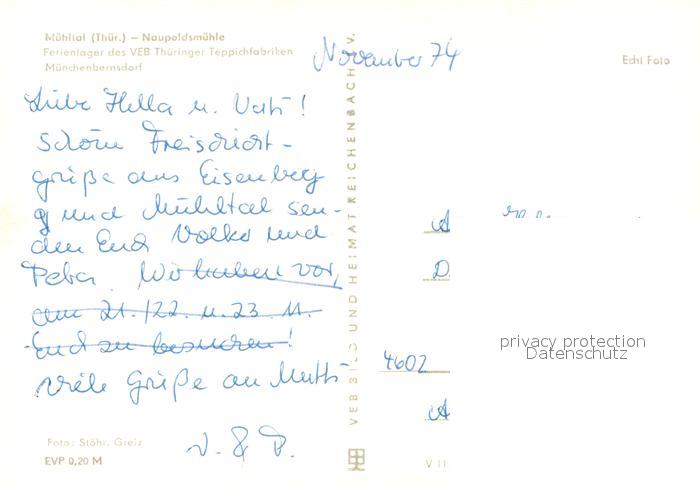 Mühltal (Thür.) — Naupoldsmühle
Ferienlager des VEB Thüringer Teppichfabriken
Münchenbernsdorf
November 74
Echt Foto
Liebe Hella u. Vati!
Schöne Freischicht-
grüße aus Eisenberg
und Mühltal sen-
den Euch Volko und
Petra. Wir haben vor,
am 21./22. u. 23. 11.
Euch zu besuchen!
Viele Grüße an Mutti
V. & P.
VEB BILD UND HEIMAT REICHENBACH V.
A
D
4602
A
privacy protection
Datenschutz
Foto: Stöhr, Greiz
EVP 0,20 M
V 11